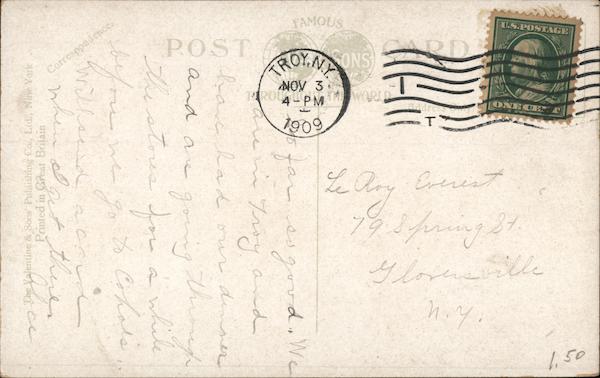 POST CARD
FAMOUS
SONS
THROUGHOUT THE WORLD
TROY, N.Y.
NOV 3
4-PM
1909
U.S. POSTAGE
ONE CENT
So far so good. We
are in Troy and
have had our dinner
and are going through
the stores for a while
before we go to Cohoes.
Will send a card
when I get there
Correspondence
The Valentine & Sons' Publishing Co., Ltd., New York
Printed in Great Britain
Le Roy Everest
79 Spring St.
Gloversville
N.Y.
1.50